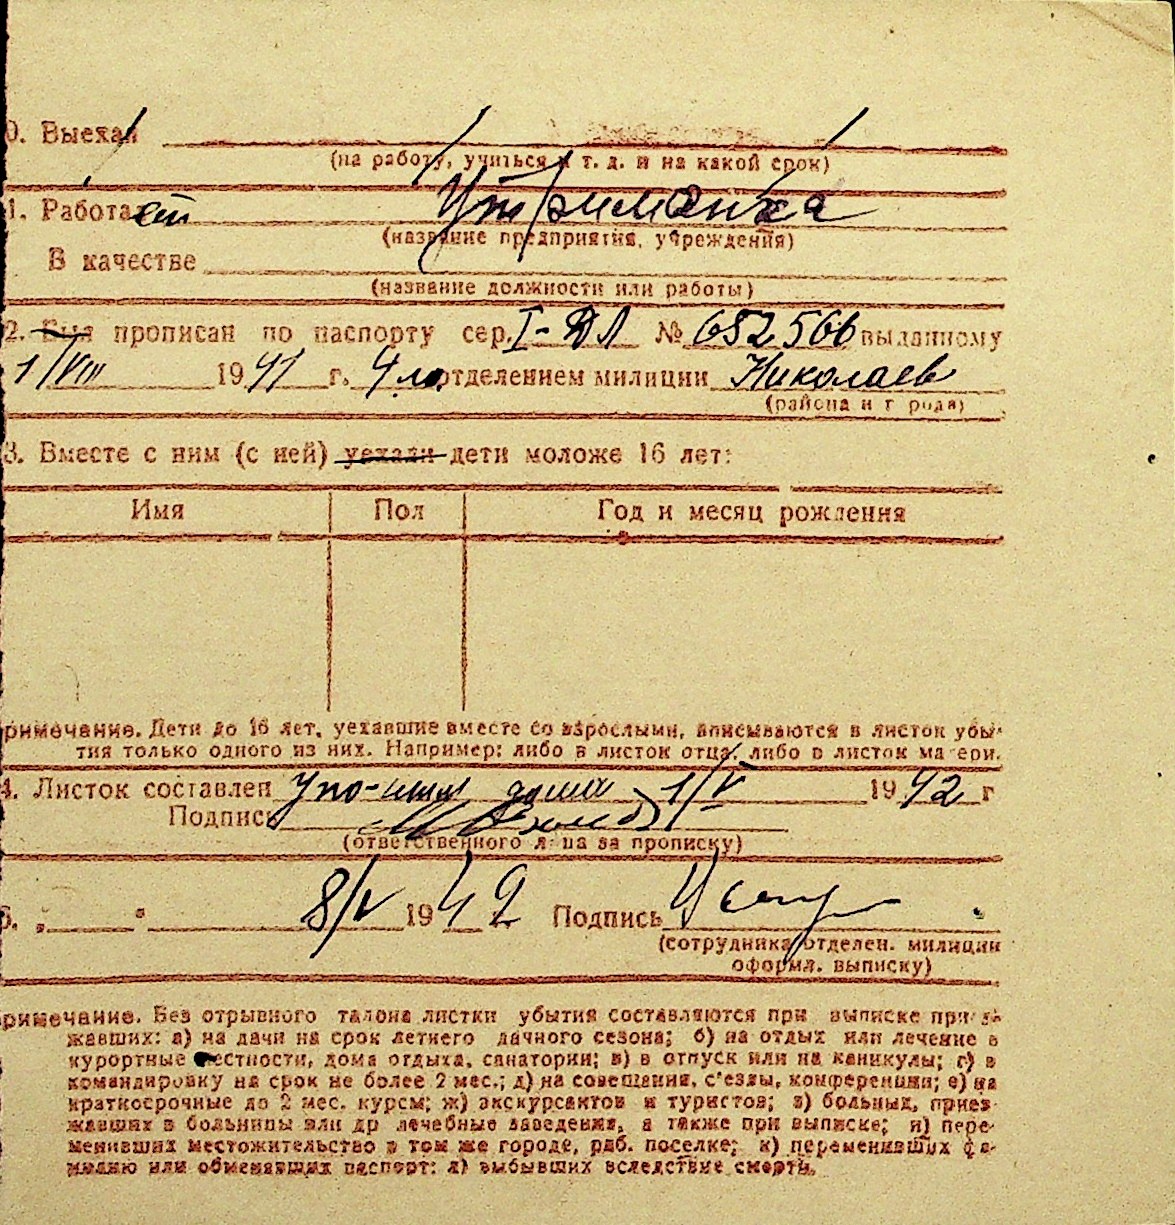 0. Выехал
(на работу, учиться и т. д. и на какой срок)
1. Работает Утриманка
(название предприятия, учреждения)
В качестве
(название должности или работы)
2. Был прописан по паспорту сер. I-ДЛ № 652566 выданному
1/VIII 1941 г. 4 м. отделением милиции Николаев
(района и г рода)
3. Вместе с ним (с ней) уехали дети моложе 16 лет:
Имя Пол Год и месяц рождения
римечание. Дети до 16 лет, уехавшие вместе со взрослыми, вписываются в листок убы-
тия только одного из них. Например: либо в листок отца, либо в листок матери.
4. Листок составлен дома 1/V 1942 г
Подпись
(ответственного лица за прописку)
5. „ " 8/V 1942 Подпись
(сотрудника отделен. милиции
оформл. выписку)
римечание. Без отрывного талона листки убытия составляются при выписке приез-
жавших: а) на дачи на срок летнего дачного сезона; б) на отдых или лечение в
курортные местности, дома отдыха, санатории; в) в отпуск или на каникулы; г) в
командировку на срок не более 2 мес.; д) на совещания, с'езды, конференции; е) на
краткосрочные до 2 мес. курсы; ж) экскурсантов и туристов; з) больных, приез-
жавших в больницы или др лечебные заведения, а также при выписке; и) пере-
менивших местожительство в том же городе, раб. поселке; к) переменивших фа-
милию или обменявших паспорт; л) выбывших вследствие смерти.